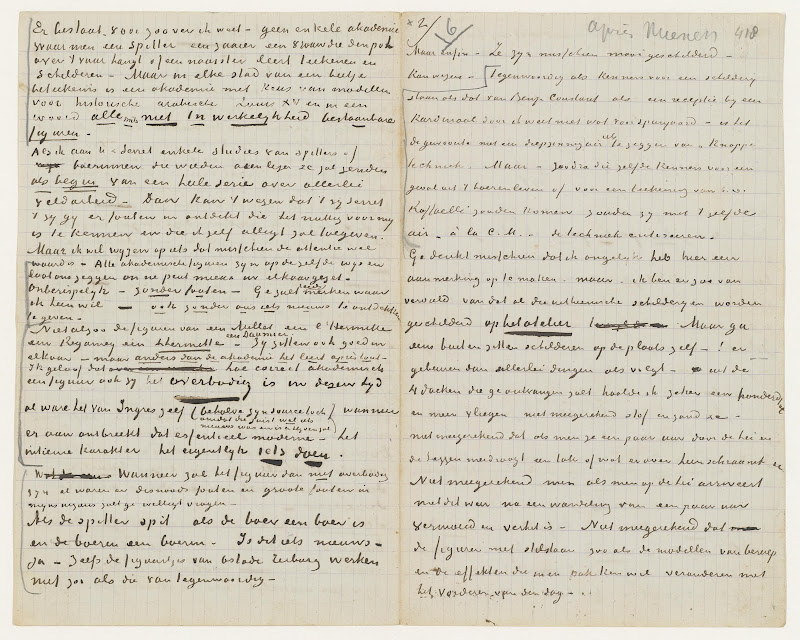 Er bestaat, voor zoo ver ik weet – geen enkele akademie
waar men een spitter een zaaier een vrouw die den pot
over 't vuur hangt of een naaister leert teekenen en
schilderen – Maar in elke stad van een beetje
beteekenis is een akademie met keus van modellen
voor historische arabische Louis XV en in een
woord alle mits niet in werkelijkheid bestaanbare
figuren –
Als ik aan U & Serret enkele studies van spitters of
boerinnen die wieden aren lezen &c zal zenden
als begin van een heele serie over allerlei
veldarbeid – Dan kan 't wezen dat 't zij Serret
't zij gij er fouten in ontdekt die het nuttig voor mij
is te kennen en die ik zelf allegt zal toegeven.
Maar ik wil wijzen op iets dat misschien de attentie wel
waard is – Alle akademische figuren zijn op dezelfde wijs en
laat ons zeggen on ne peut mieux in elkaar gezet –
Onberispelijk – zonder fouten – Ge zult merken waar
ik heen wil – ook zonder ons iets nieuws te ontdekken
te geven.
Niet alzoo de figuren van een Millet een L'hermitte
een Regamey een Lhermitte een Daumier – Zij zitten ook goed in
elkaar – maar anders dan de akademie het leert après tout –
Ik geloof dat hoe correct akademisch
een figuur ook zij het overbodig is in dezen tijd
al ware het van Ingres zelf (behalve zijn source toch
omdat die juist wel iets
nieuws was en is en zijn zal) wanneer
er aan ontbreekt dat essentieel moderne – het
intieme karakter het eigentlijk iets doen.
Wanneer zal het figuur dan niet overbodig
zijn al waren er desnoods fouten en groote fouten in
mijns inziens zult ge wellicht vragen –
Als de spitter spit als de boer een boer is
en de boerin een boerin. Is dit iets nieuws –
ja – Zelfs de figuurtjes van Ostade Terburg werken
niet zoo als die van tegenwoordig –
2/ 6 après Nuenen 418
Maar enfin – Ze zijn misschien mooi geschilderd –
Kan wezen – Tegenwoordig als kenners voor een schilderij
staan als dat van Benj. Constant als een receptie bij een
kardinaal door ik weet niet wat voor Spanjaard – is het
de gewoonte met een diepzinnig air iets te zeggen van "Knappe
techniek". Maar – zoodra die zelfde kenners voor een
geval uit 't boerenleven of voor een teekening van b.v.
Raffaelli zouden komen zouden zij met 't zelfde
air – à la C.M. – de techniek critiseeren.
Ge denkt misschien dat ik ongelijk heb hier een
aanmerking op te maken, maar, ik ben er zoo van
vervuld van dat al die uitheemsche schilderijen worden
geschilderd op het atelier Maar ga
eens buiten zitten schilderen op de plaats zelf –! er
gebeuren dan allerlei dingen als volgt – uit de
4 doeken die ge ontvangen zult haalde ik zeker een honderd
en meer vliegen niet meegerekend stof en zand &c –
niet meegerekend dat als men ze een paar uur door de hei en
de heggen meedraagt een tak of wat er over heen schrammt &c
Niet meegerekend men als men op de hei arriveert
met dit weer na een wandeling van een paar uur
vermoeid en verhit is – Niet meegerekend dat
de figuren niet stilstaan zoo als de modellen van beroep
en de effekten die men pakken wil veranderen met
het vorderen van den dag –